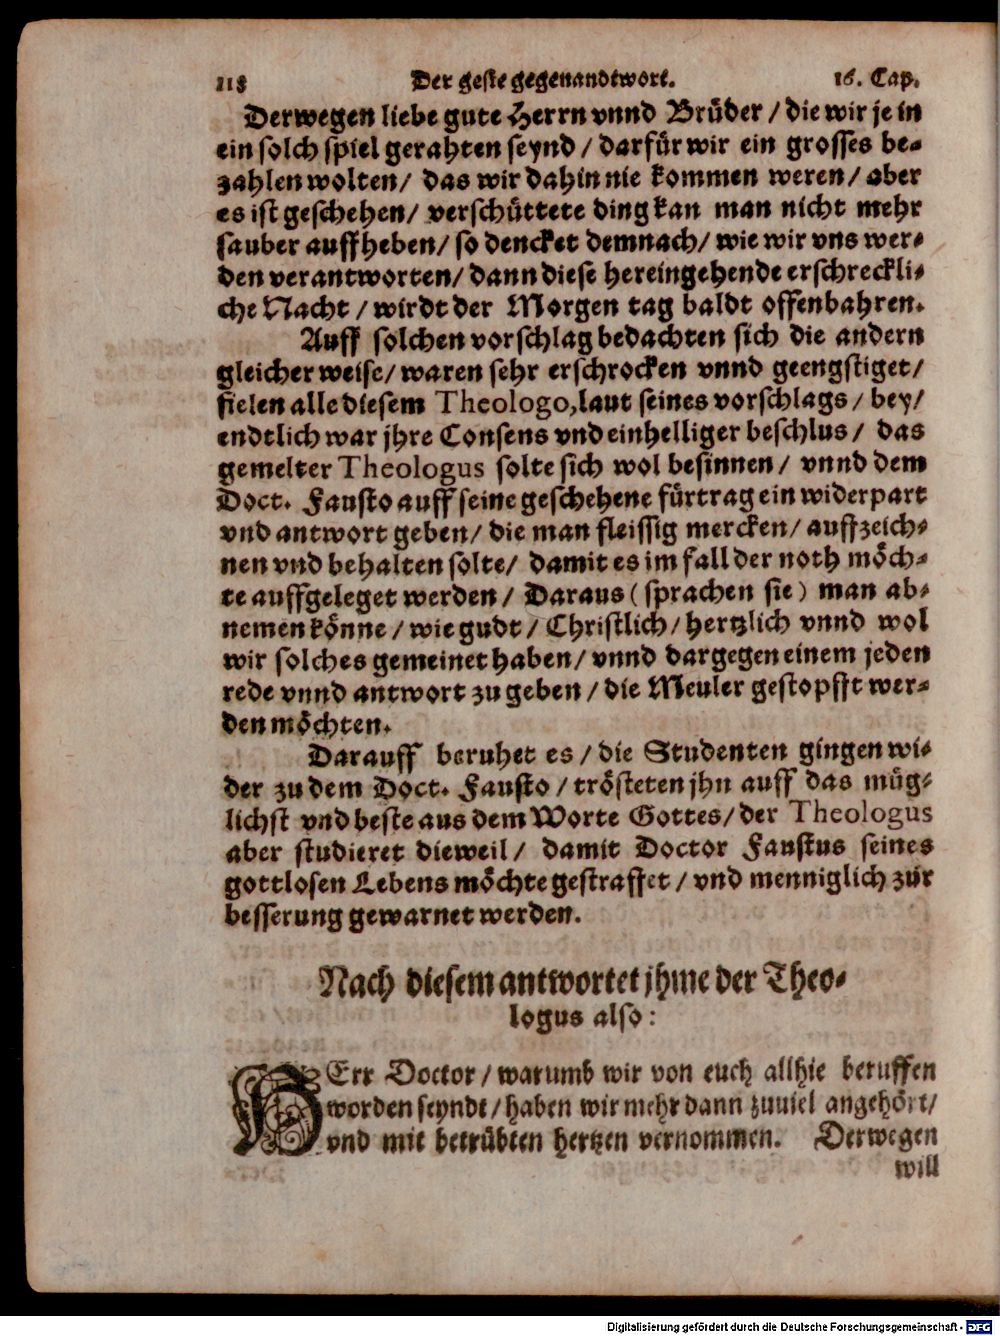 118 Der geste gegenandtwort. 16. Cap.
Derwegen liebe gute Herrn vnnd Brüder / die wir je in
ein solch spiel gerahten seynd / darfür wir ein grosses be-
zahlen wolten / das wir dahin nie kommen weren / aber
es ist geschehen / verschüttete ding kan man nicht mehr
sauber auffheben / so dencket demnach / wie wir vns wer-
den verantworten / dann diese hereingehende erschreckli-
che Nacht / wirdt der Morgen tag baldt offenbahren.
Auff solchen vorschlag bedachten sich die andern
gleicher weise / waren sehr erschrocken vnnd geengstiget /
fielen alle diesem Theologo, laut seines vorschlags / bey /
endtlich war jhre Consens vnd einhelliger beschlus / das
gemelter Theologus solte sich wol besinnen / vnnd dem
Doct. Fausto auff seine geschehene fürtrag ein widerpart
vnd antwort geben / die man fleissig mercken / auffzeich-
nen vnd behalten solte / damit es im fall der noth möch-
te auffgeleget werden / Daraus ( sprachen sie ) man ab-
nemen könne / wie gudt / Christlich / hertzlich vnnd wol
wir solches gemeinet haben / vnnd dargegen einem jeden
rede vnnd antwort zu geben / die Meuler gestopfft wer-
den möchten.
Darauff beruhet es / die Studenten gingen wi-
der zu dem Doct. Fausto / trösteten jhn auff das müg-
lichst vnd beste aus dem Worte Gottes / der Theologus
aber studieret dieweil / damit Doctor Faustus seines
gottlosen Lebens möchte gestraffet / vnd menniglich zur
besserung gewarnet werden.
Nach diesem antwortet jhme der Theo-
logus also:
HErr Doctor / warumb wir von euch allhie beruffen
worden seyndt / haben wir mehr dann zuuiel angehört /
vnd mit betrübten hertzen vernommen. Derwegen
will
Digitalisierung gefördert durch die Deutsche Forschungsgemeinschaft - DFG